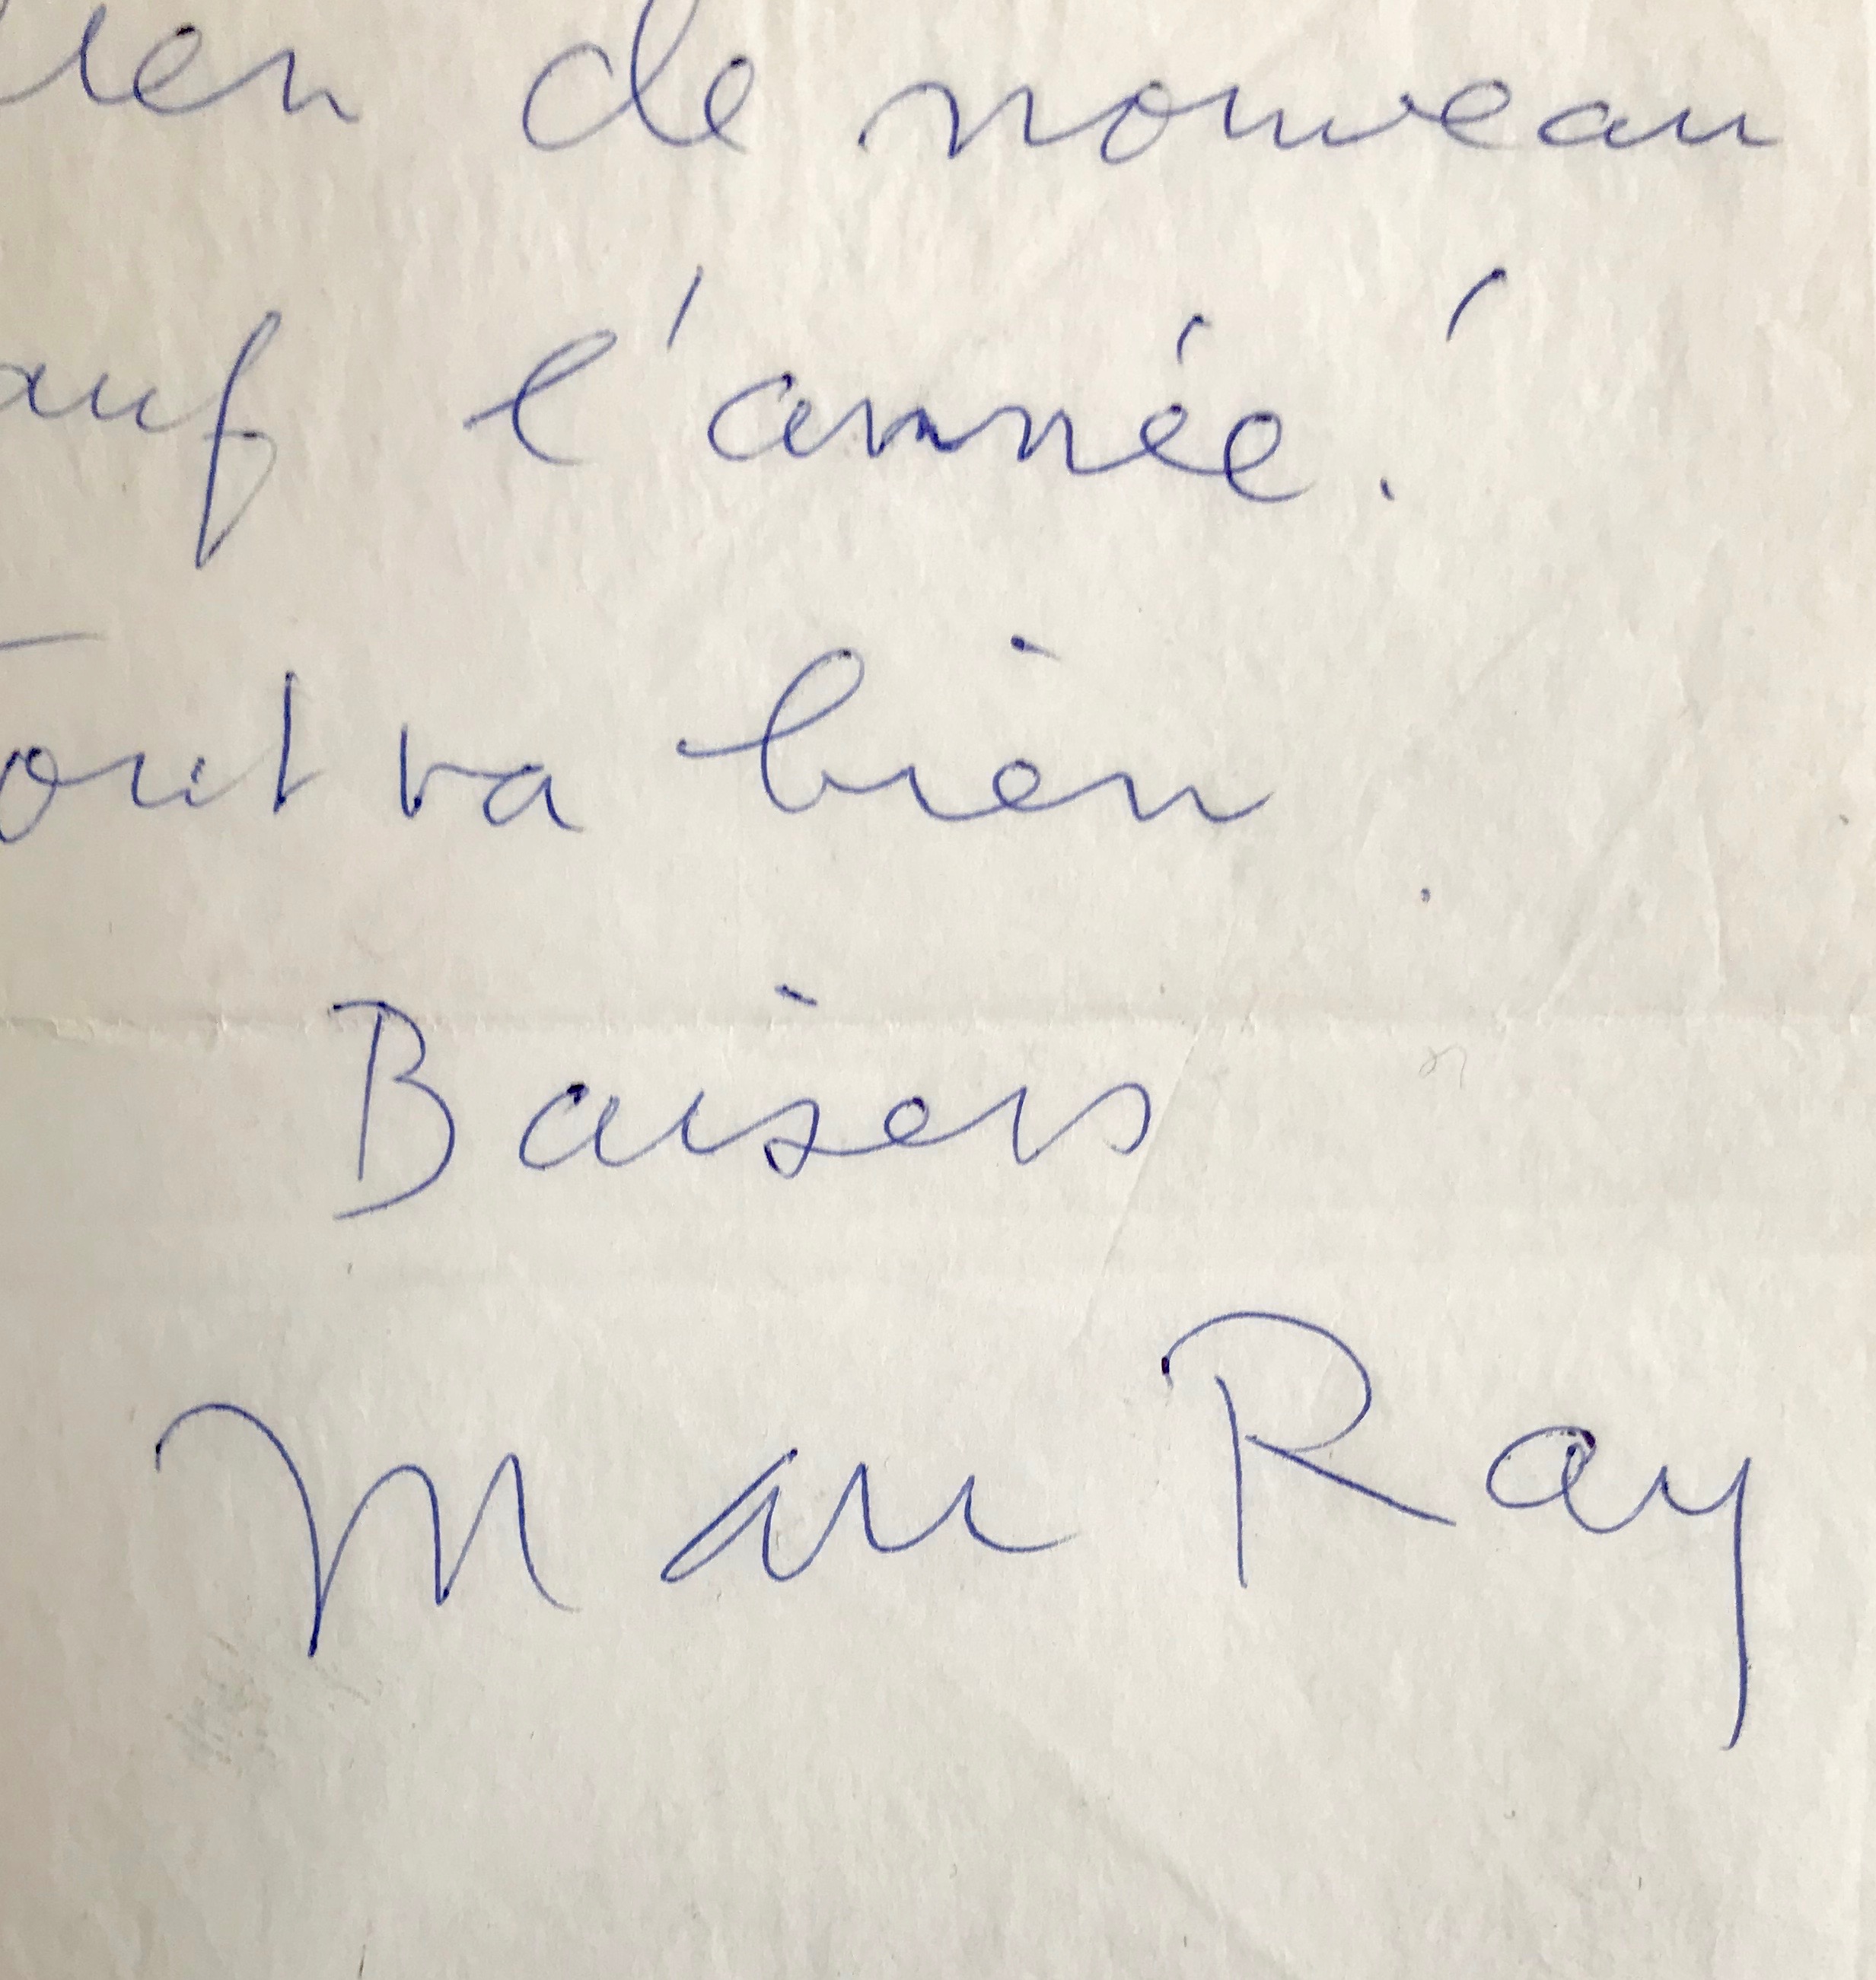 ien de nouveau
auf l'année!
out va bien
Baisers
Man Ray